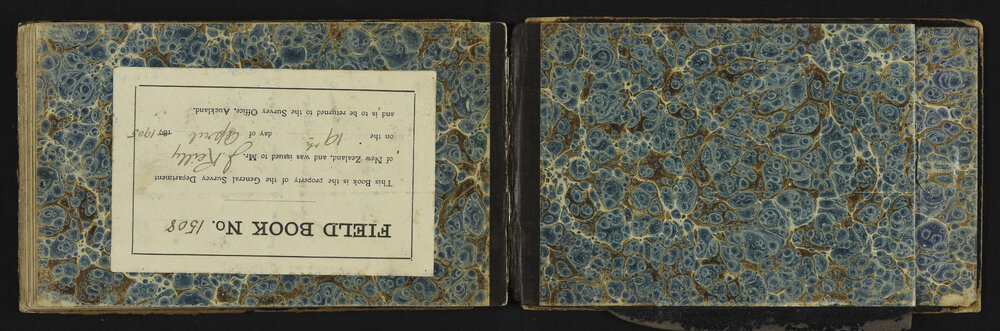 FIELD BOOK No. 1508
This Book is the property of the General Survey Department
of New Zealand, and was issued to Mr. J. Kelly
on the 19th day of April 187 1905
and is to be returned to the Survey Office, Auckland.